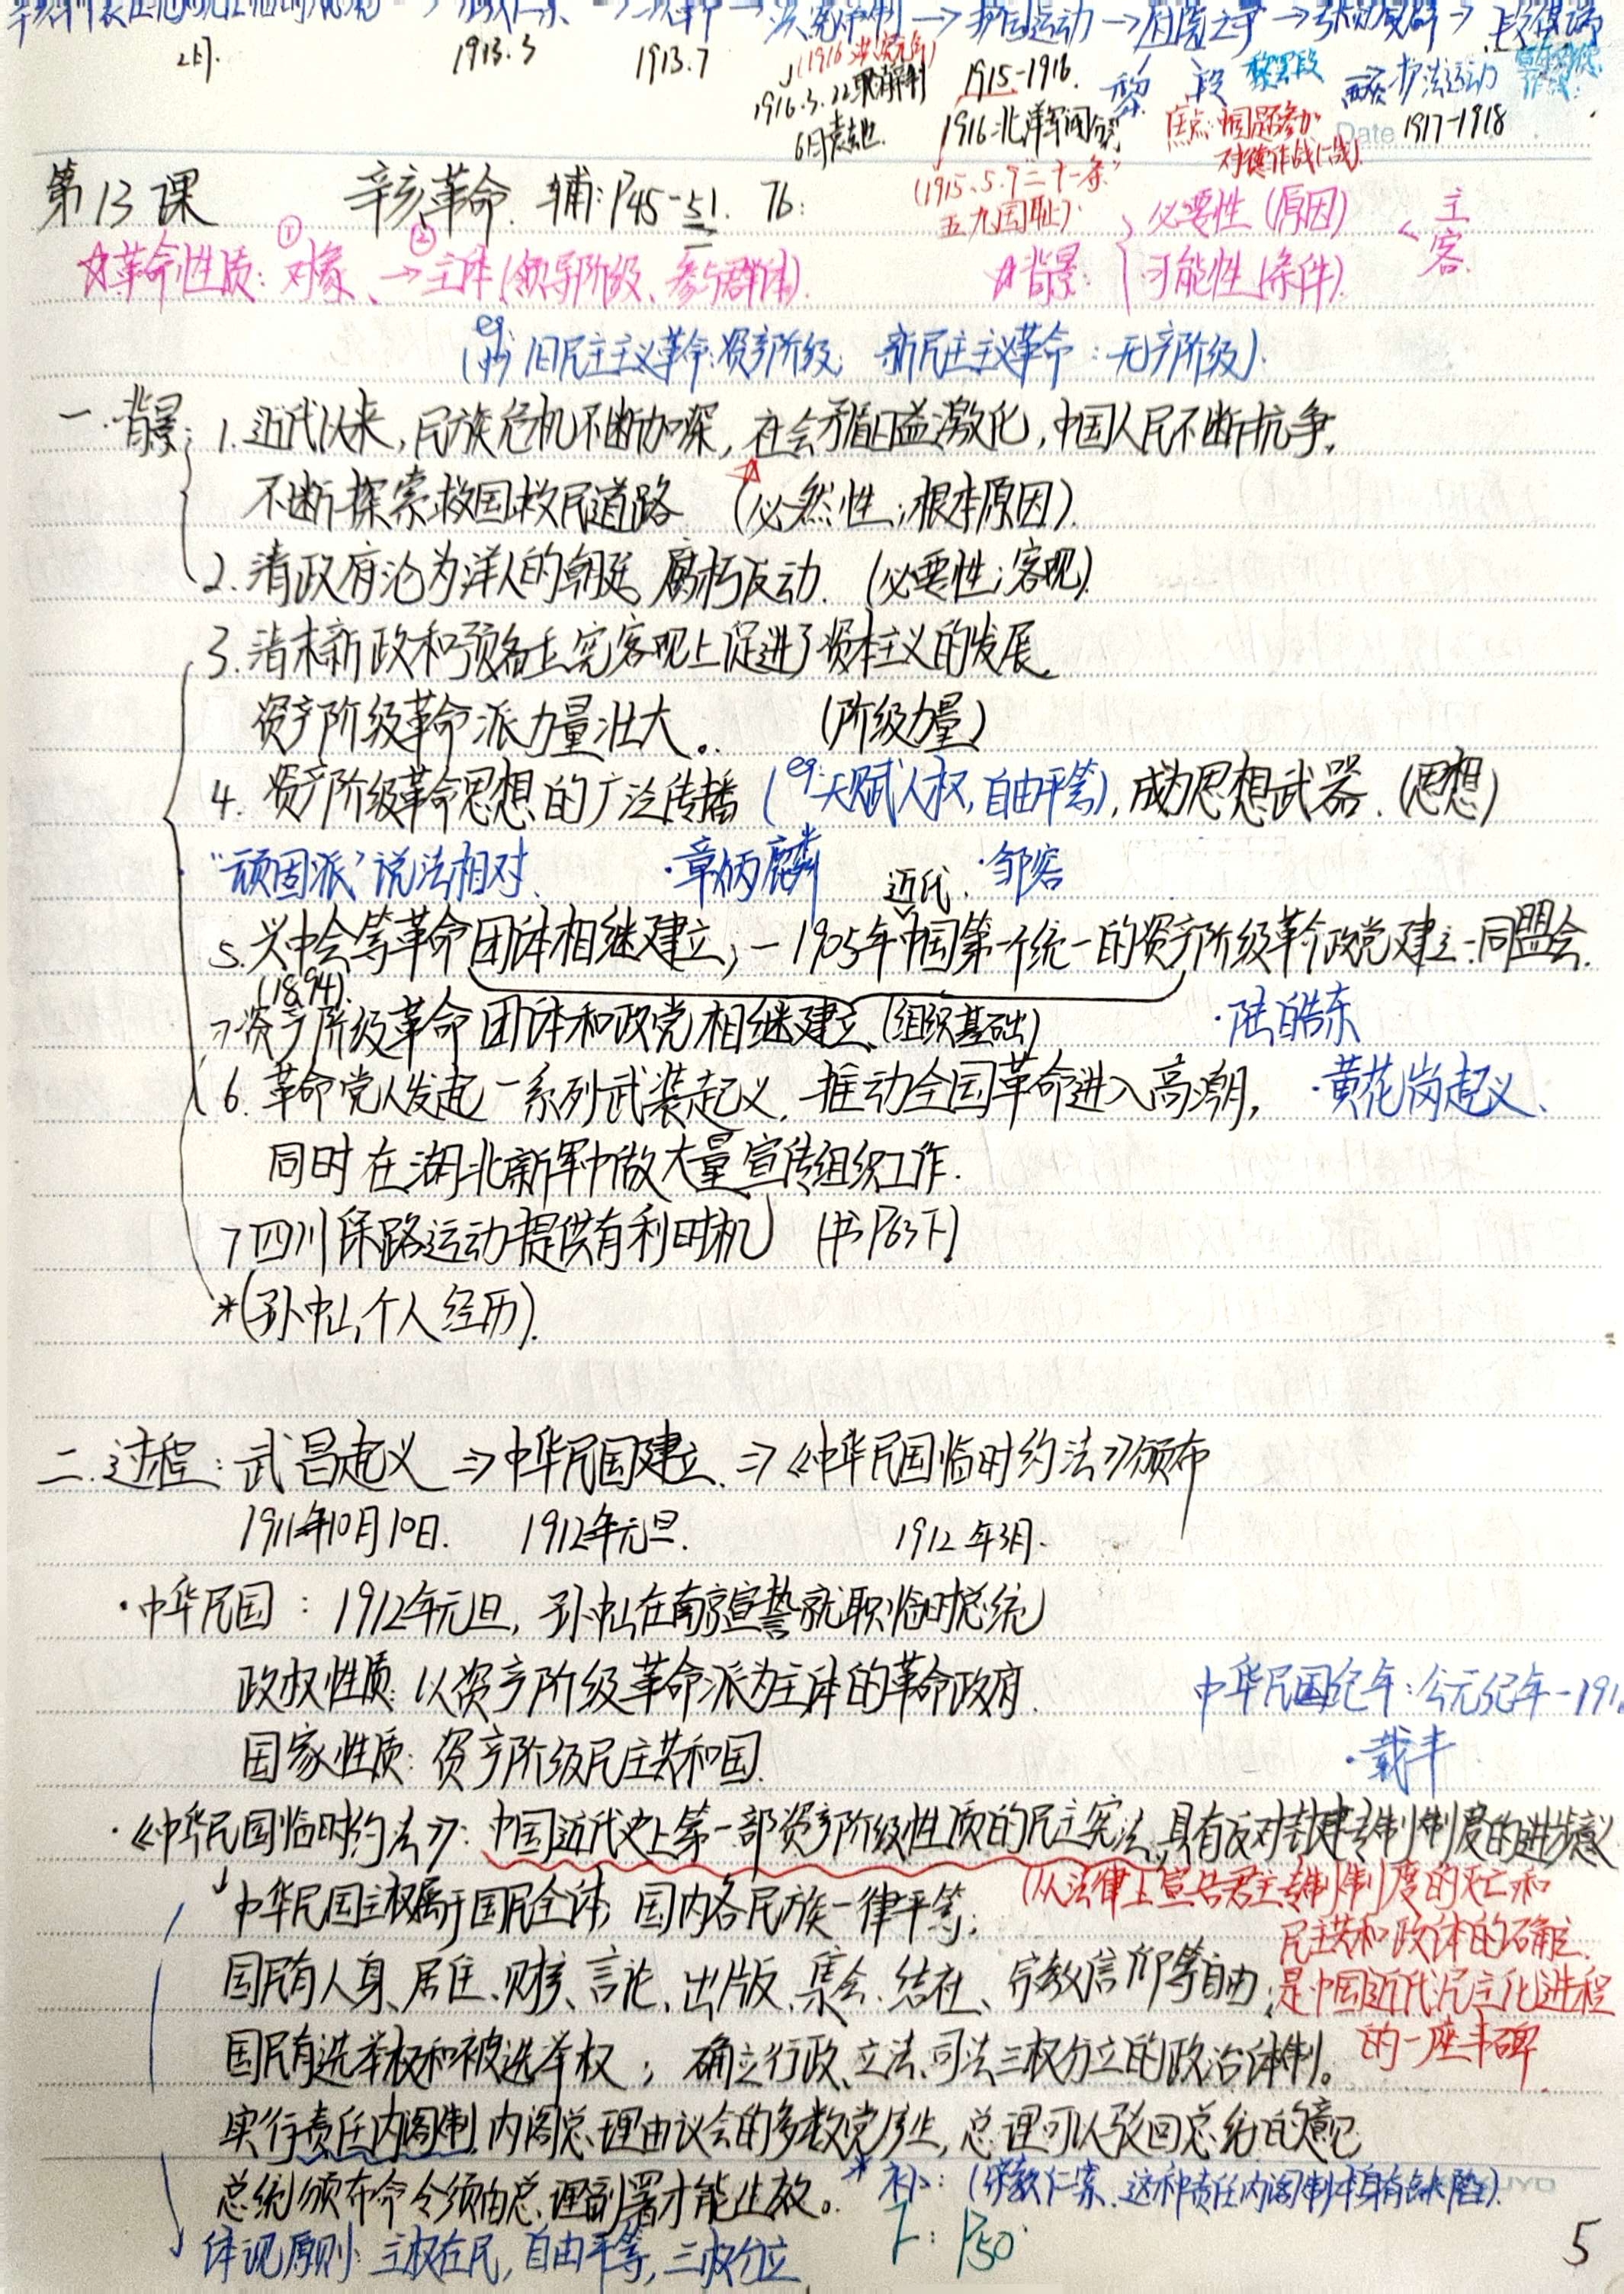 →护国运动→府院之争→张勋复辟→段祺瑞
2月. 1913.3 1913.7 (1916 洪宪元年) 1915-1916. 黎 段 护法运动
1916.3.22取消帝制 1916北洋军阀分裂 焦点:中国是否参加 Date 1917-1918
6月袁世凯 对德作战(一战)
(1915.5.9"二十一条"
五九国耻)
第13课 辛亥革命. 辅:P45-51. 76:
必要性(原因) < 主
客
☆革命性质: ①对象、→②主体(领导阶级、参与群体). ☆背景: 可能性(条件).
(eg: 旧民主主义革命:资产阶级; 新民主主义革命:无产阶级).
一.背景: 1.近代以来,民族危机不断加深,社会矛盾日益激化,中国人民不断抗争,
不断探索救国救民道路 ☆(必然性;根本原因).
2.清政府沦为洋人的朝廷,腐朽反动. (必要性;客观).
3.清末新政和预备立宪客观上促进了资本主义的发展,
资产阶级革命派力量壮大。 (阶级力量)
4.资产阶级革命思想的广泛传播(eg:天赋人权,自由平等),成为思想武器.(思想)
"顽固派"说法相对. ·章炳麟 近代 ·邹容
5.兴中会等革命团体相继建立,—1905年中国第一个统一的资产阶级革命政党建立:同盟会.
(1894).
⇒资产阶级革命团体和政党相继建立(组织基础) ·陆皓东
6.革命党人发起一系列武装起义,推动全国革命进入高潮, ·黄花岗起义、
同时在湖北新军中做大量宣传组织工作.
7四川保路运动提供有利时机 (书P63下)
*(孙中山个人经历).
二.过程:武昌起义⇒中华民国建立.⇒《中华民国临时约法》颁布
1911年10月10日. 1912年元旦. 1912年3月.
·中华民国:1912年元旦,孙中山在南京宣誓就职临时总统
政权性质:以资产阶级革命派为主体的革命政府. 中华民国纪年:公元纪年-191
国家性质:资产阶级民主共和国. ·载丰
·《中华民国临时约法》:中国近代史上第一部资产阶级性质的民主宪法,具有反对封建专制制度的进步意义
中华民国主权属于国民全体;国内各民族一律平等; (从法律上宣告君主专制制度的灭亡和
民主共和政体的确立.
国民有人身、居住、财产、言论、出版、集会、结社、宗教信仰等自由; 是中国近代民主化进程
国民有选举权和被选举权;确立行政、立法、司法三权分立的政治体制。 的一座丰碑
实行责任内阁制,内阁总理由议会的多数党产生,总理可以驳回总统的意见
总统颁布命令须由总理副署才能生效。 *补:(宋教仁案、这种责任内阁制本身有缺陷).
体现原则:主权在民,自由平等,三权分立 下:P50
5